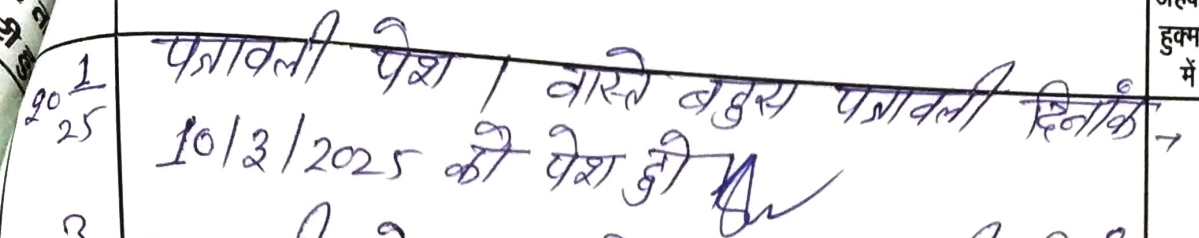 हुक्म
में
20 1/25
पत्रावली पेश । वास्ते बहस पत्रावली दिनांक →
10/3/2025 को पेश हो